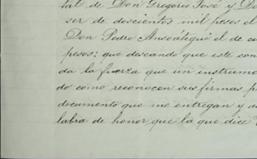 tal de Don Gregorio José y D
ser de doscientos mil pesos el
Don Pedro Ansoátegui el de co
pesos; que deseando que este con
da la fuerza que un instrumo
do como reconocen sus firmas p
documento que me entregan y a
labra de honor que la que dice